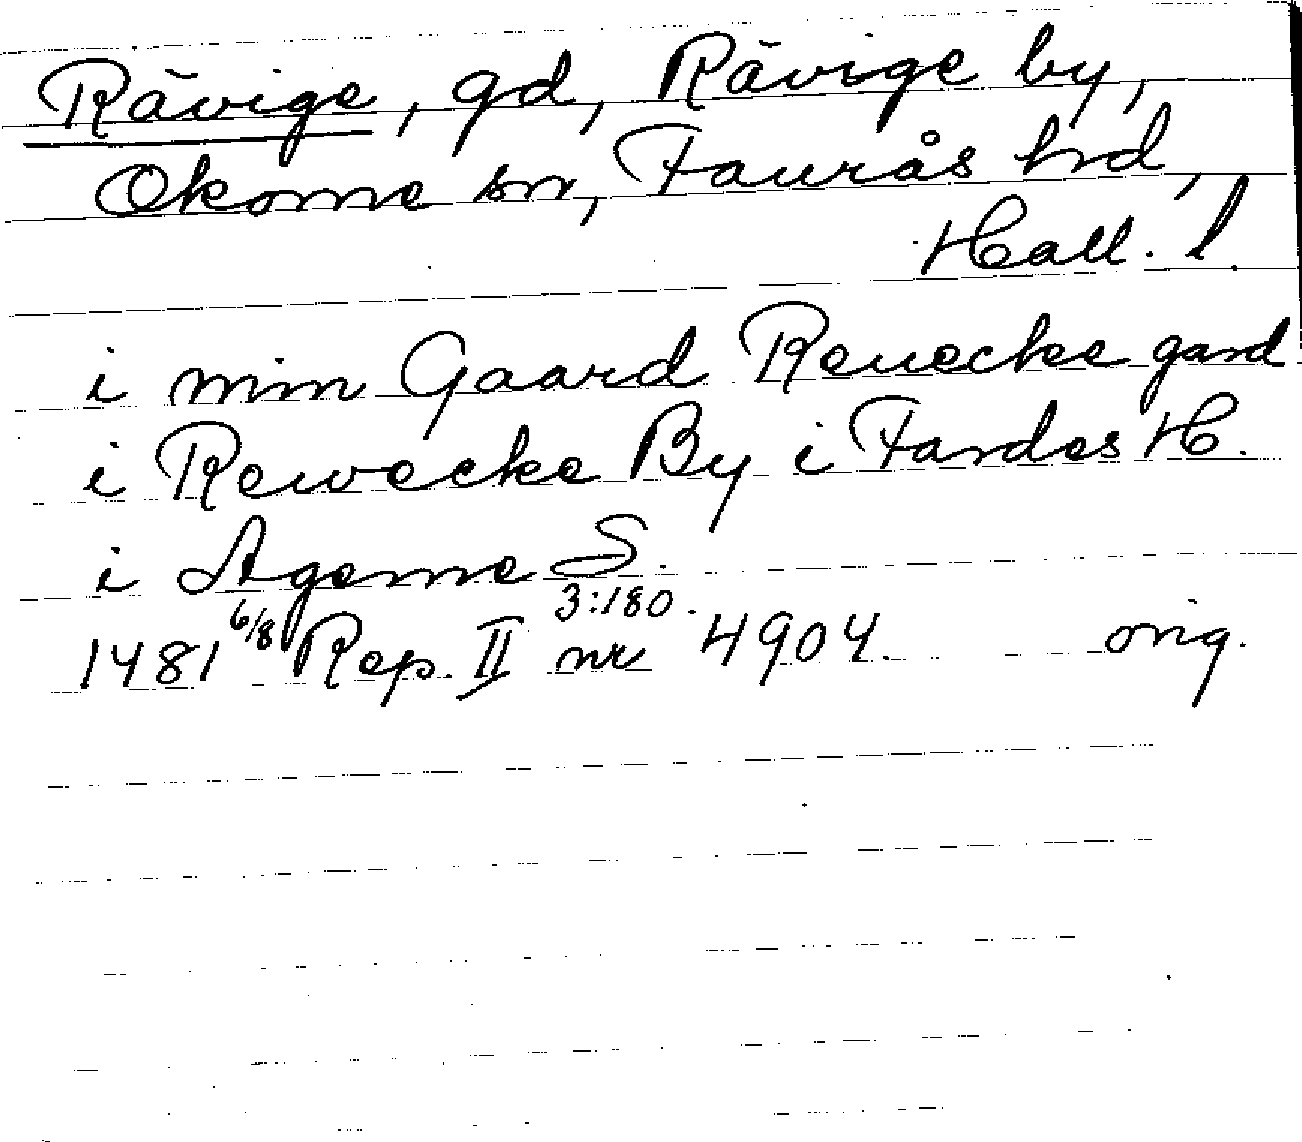 Rävige, gd, Rävige by,
Okome sn, Faurås hd,
Hall. l.
i min Gaard Reuecke gard
i Rewecke By i Fardes H.
i Ageme S.
1481 6/8 Rep. II 3:180. nr 4904. orig.